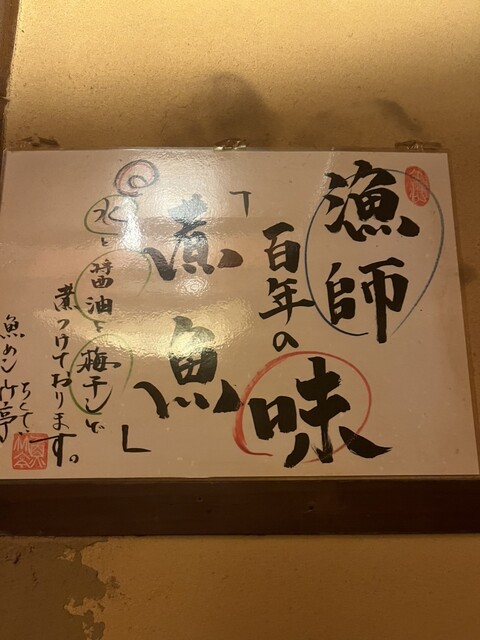 漁師
百年の味
「煮魚」
水と醤油と梅干しで
煮つけております。
魚めし 竹亭
ちくてい